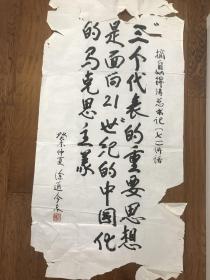 摘自江泽民总书记(七一)讲话
“三个代表”的重要思想
是面向21世纪的中国化
的马克思主义
癸未仲夏 涂道